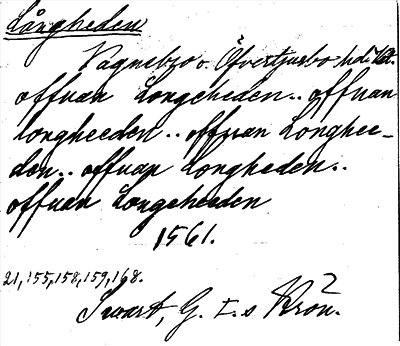 Långheden
Vagnebro o. Öfvertjurbo hdr
offuan Longeheden.. offuan
longheeden.. offuan Longhee-
den.. offuan Longheden..
offuan Longeheeden
1561.
21, 155, 158, 159, 168.
Swart, G. I:s Krön. 2